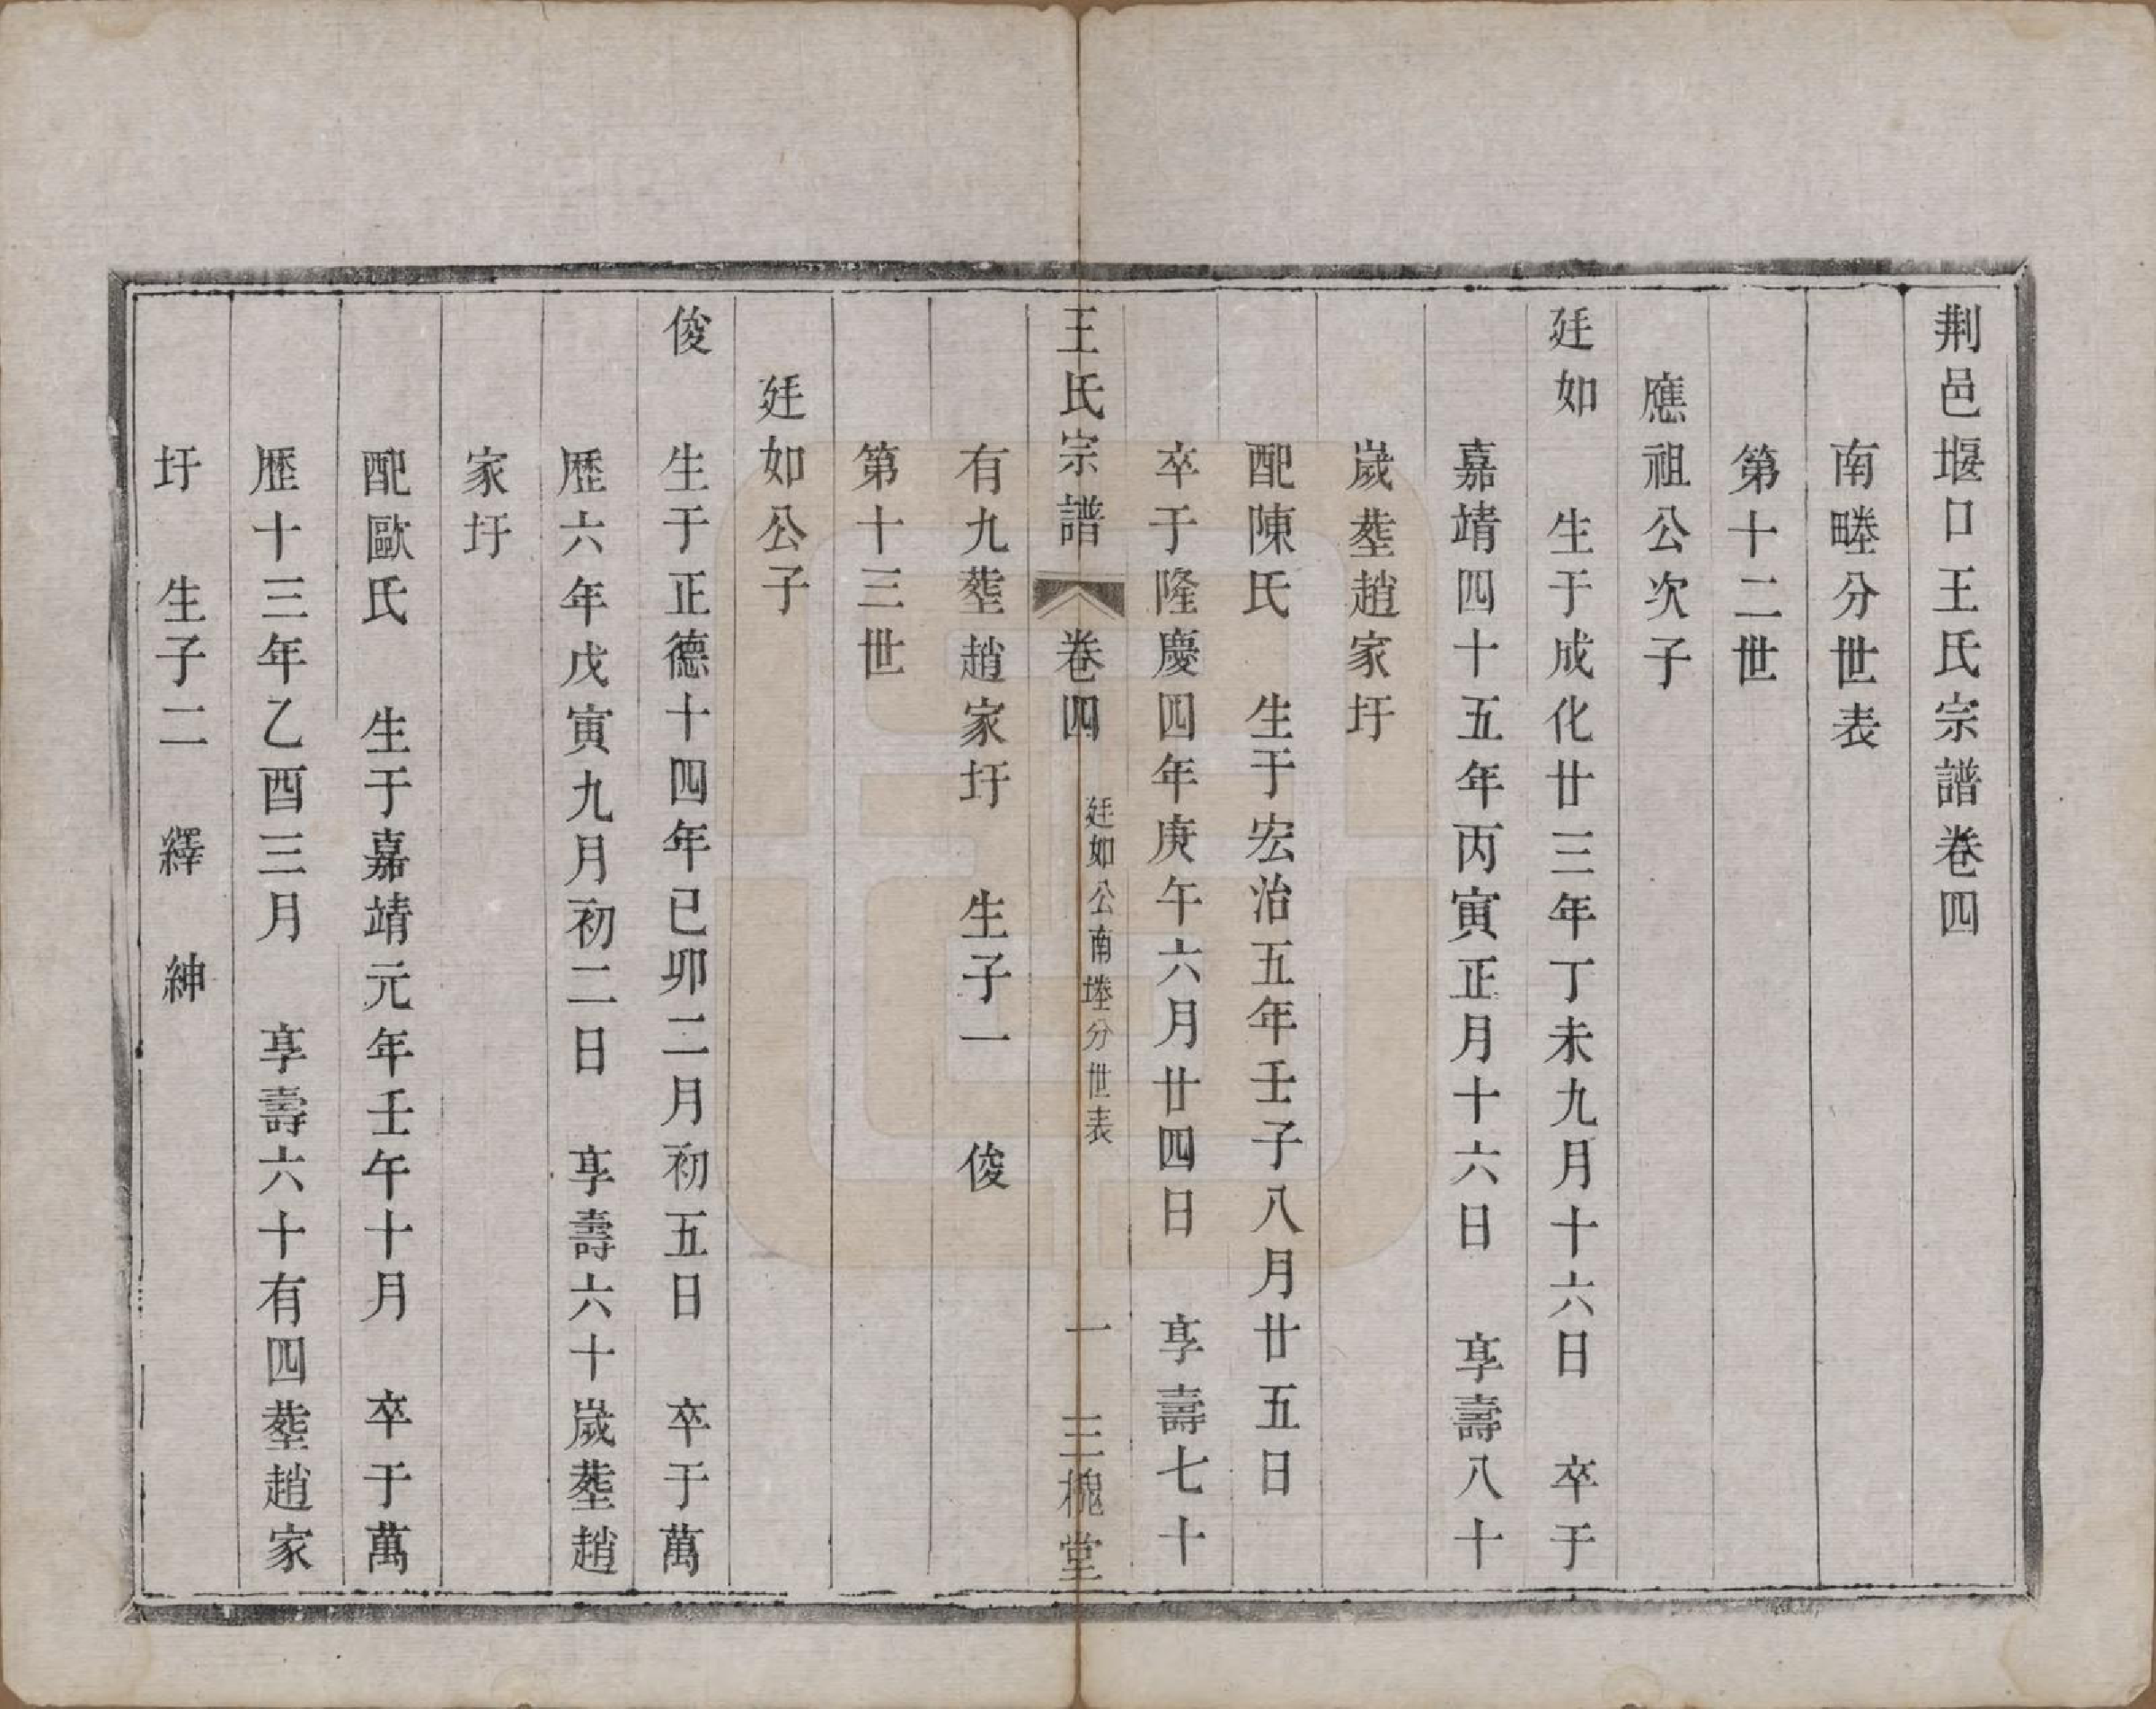 荆邑堰口王氏宗譜卷四
南𤲞分世表
第十二世
應祖公次子
廷如　生于成化廿三年丁未九月十六日　卒于
嘉靖四十五年丙寅正月十六日　享壽八十
歲塟趙家圩
配陳氏　生于宏治五年壬子八月廿五日
卒于隆慶四年庚午六月廿四日　享壽七十
有九塟趙家圩　生子一　俊
王氏宗譜　卷四　廷如公南埄分世表　一　三槐堂
第十三世
廷如公子
俊　生于正德十四年已卯二月初五日　卒于萬
歷六年戊寅九月初二日　享壽六十歲塟趙
家圩
配歐氏　生于嘉靖元年壬午十月　卒于萬
歷十三年乙酉三月　享壽六十有四塟趙家
圩　生子二　繹　紳